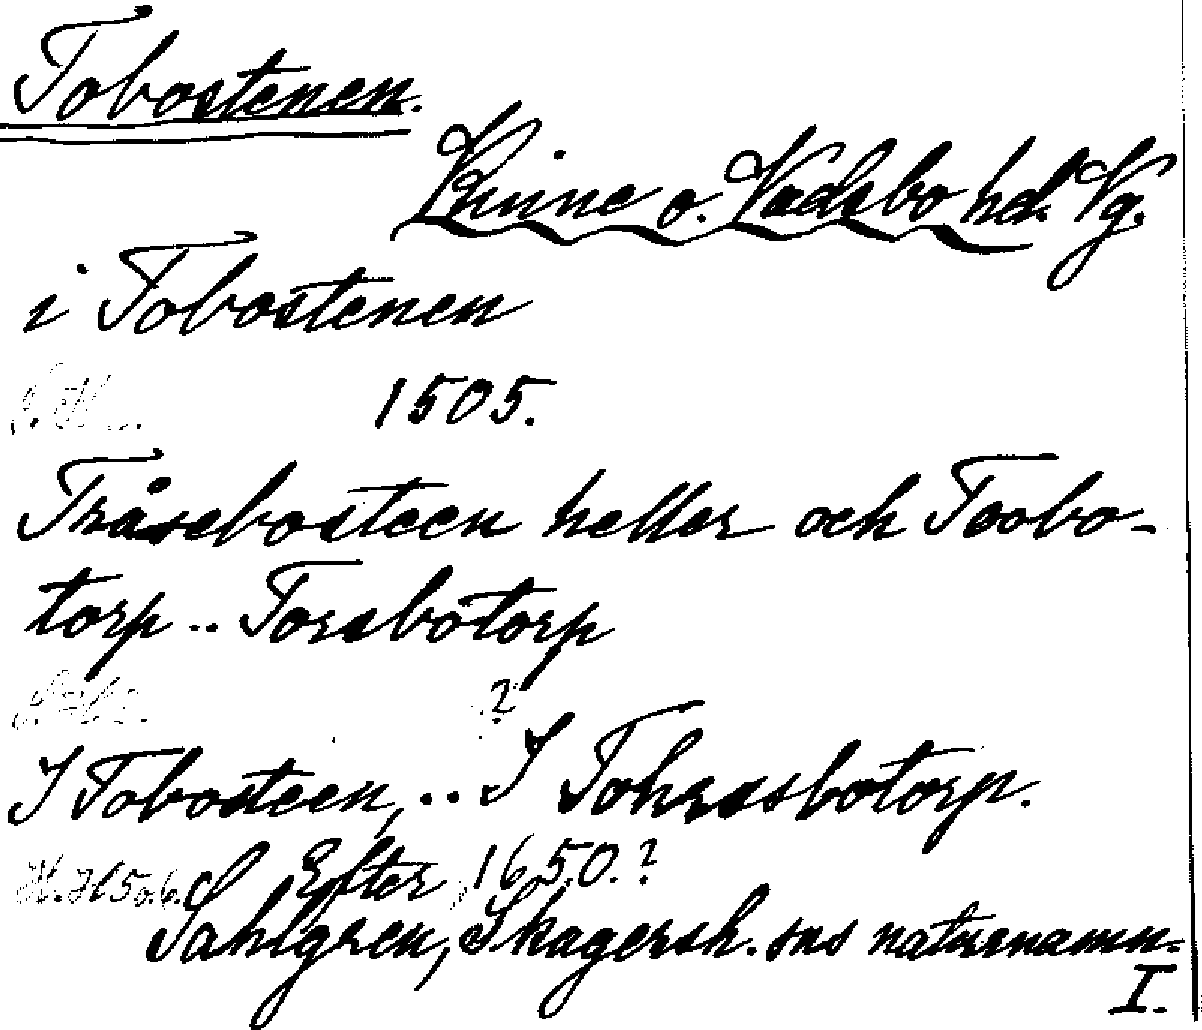 Tobostenen.
Kinne o. Vadsbo hd. Vg.
i Tobostenen
1505.
Tråsebosteen heller och Toobo-
torp .. Torsbotorp
?
I Tobosteen, .. I Tohrssbotorp.
Efter 1650.?
Sahlgren, Skagersh. sns naturnamn.
I.